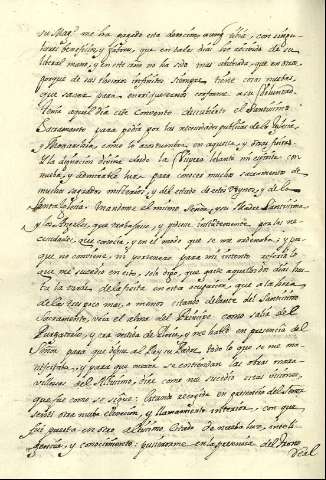 su Mag.d me ha pagado esta devocion, aunq tibia, con singu-
lares beneficios, y fabores, que en tales dias ê recivido de su
liberal mano, y en este año no ha sido mas abreviada, que en otros,
porque de sus thesoros infinitos siempre tiene cosas nuebas,
que sacar para enriquezernos conforme a su Voluntad.
Tenia aquel dia este Convento descubierto el Santissimo
Sacramento para pedir por las necesidades publicas de la Iglesia,
y Monarchia, como lo acostumbra en aquesta, y otras fiestas.
Y la dignacion Divina desde la Vispera lebantò mi espiritu con
nueba, y admirable luz para conocer nuebos sacramentos de
muchos sagrados misterios, y del estado de estos Reynos, y de la
Santa Iglesia. Mandome el mismo Señor, y su Madre Santissima
y los Angeles, que trabaxase, y pidiese instantemente por las ne-
cesidades, que conocia, y en el modo que se me ordenaba; y por
que no conviene, ni pertenece para mi intento referir lo
que me sucedio en esto, solo digo, que gastè aquellos dias has-
ta la tarde de la fiesta en esta ocupacion, que a la hora
de las seis poco mas, o menos estando delante del Santissimo
Sacramento, veia el alma del Principe como salia del
Purgatorio, y era vestida de Gloria, y me hablò en presencia del
Señor para que dijese al Rey su Padre todo lo que se me ma-
nifestaba, y para que mejor se entiendan las obras mara-
villosas del Altissimo, dirè como me sucedio estas visiones,
que fue como se sigue: Estando recogida en presencia del Señor
senti otra nueba elevacion, y llamamiento interior, con que
fui puesta en otro altissimo estado de nueba luz, inteli-
gencia, y conocimiento: pusieronme en la presencia del Trono
Real